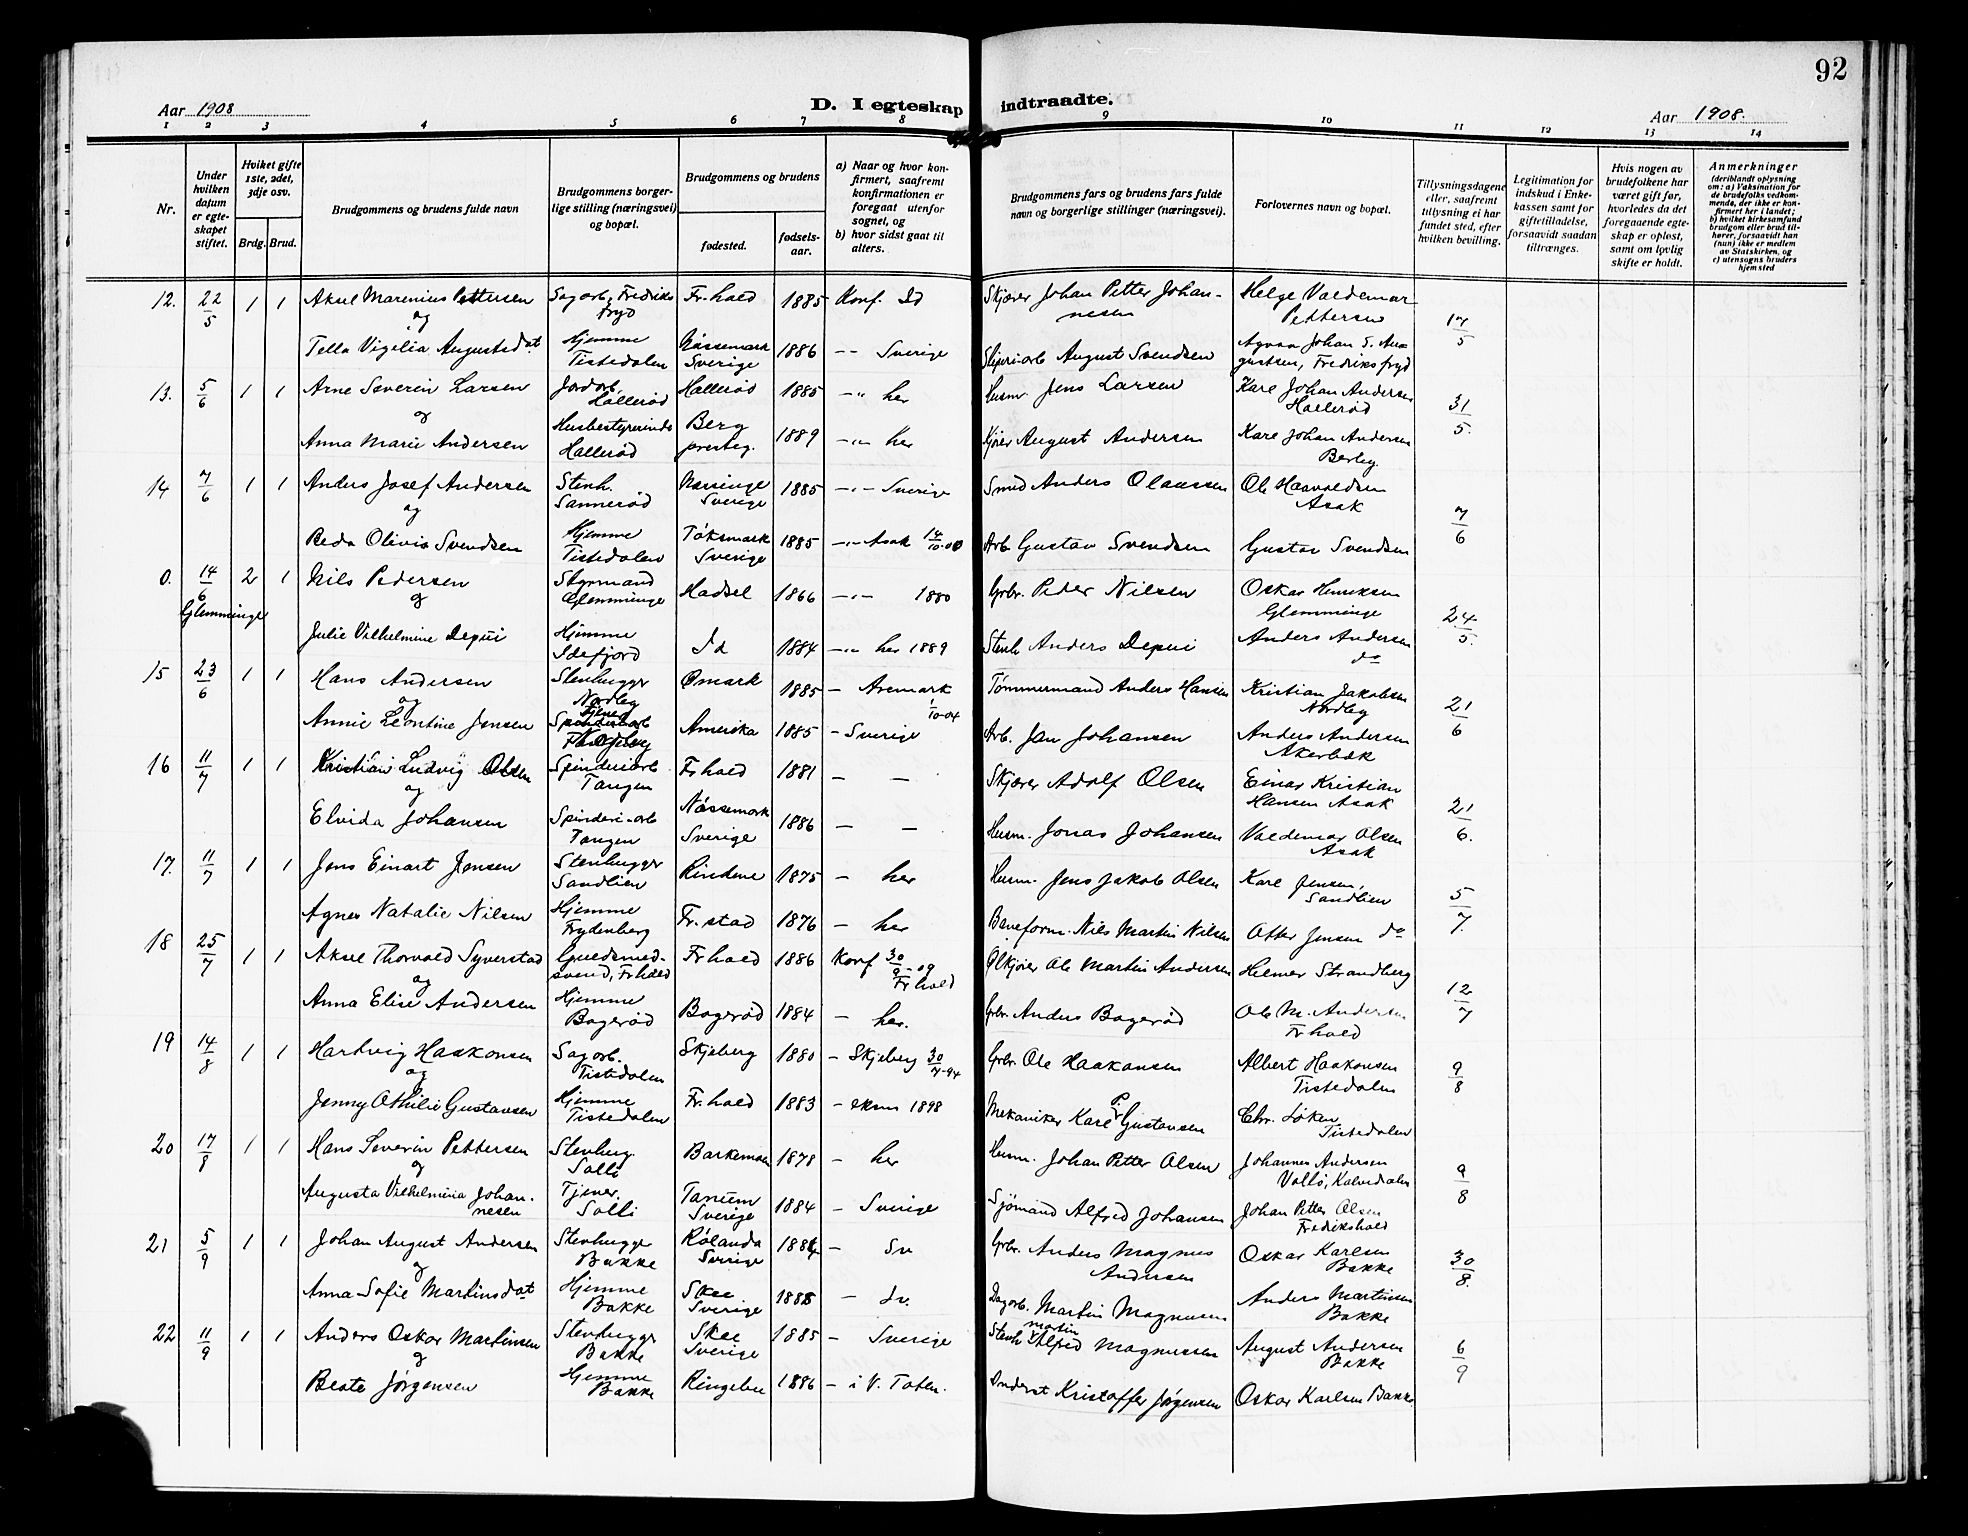 92
Aar 1908
D. I egteskap indtraadte.
Aar 1908.
1 2 3 4 5 6 7 8 9 10 11 12 13 14
Nr.
Under hvilken datum er egteskapet stiftet.
Hvilket gifte 1ste, 2det, 3dje osv.
Brdg. Brud.
Brudgommens og brudens fulde navn
Brudgommens borgerlige stilling (næringsvei) og bopæl.
Brudgommens og brudens
fødested.
fødselsaar.
a) Naar og hvor konfirmert, saafremt konfirmationen er foregaat utenfor sognet, og
b) hvor sidst gaat til alters.
Brudgommens fars og brudens fars fulde navn og borgerlige stillinger (næringsvei).
Forlovernes navn og bopæl.
Tillysningsdagene eller, saafremt tillysning ei har fundet sted, efter hvilken bevilling.
Legitimation for indskud i Enkekassen samt for giftetilladelse, forsaavidt saadan tiltrænges.
Hvis nogen av brudefolkene har været gift før, hvorledes da det foregaaende egteskap er opløst, samt om lovlig skifte er holdt.
Anmerkninger
(deriblandt oplysning om: a) Vaksination for de brudefolks vedkommende, der ikke er konfirmert her i landet; b) hvilket kirkesamfund brudgom eller brud tilhører, forsaavidt han (hun) ikke er medlem av Statskirken, og c) utensogns bruders hjemsted
12. 22/5 1 1 Aksel Marenius Pettersen Sagarb., Fredriksfryd Fr.hald 1885 Konf. Id Skjærer Johan Petter Johannesen Helge Valdemar Pettersen 17/5
og
Tella Vigilia Augustsdat. Hjemme Tistedalen Nössemark Sverige 1886 -"- Sverige August Svendsen Johan S. Augustsen, Fredriksfryd
13. 5/6 1 1 Arne Severin Larsen Jordarb. Hallerød Hallerød 1885 -"- her Husm. Jens Larsen Karl Johan Andersen Hallerød 31/5.
og
Anna Marie Andersen Husbestyrerinde Hallerød Berg presteg. 1889 -"- her Kjører August Andersen Karl Johan Andersen Berby
14 7/6 1 1 Anders Josef Andersen Stenh. Sannerød Sverige 1885 -"- Sverige Smed Anders Olaussen Ole Haavaldsen Asak 7/6
og
Beda Olivia Svendsen Hjemme Tistedalen Töksmark Sverige 1885 -"- Asak 14/10-00 Arb. Gustav Svendsen Gustav Svendsen
0. 14/6 Glemminge 2 1 Nils Pedersen Styrmand Glemminge Hadsel 1866 -"- 1880 Grbr. Peder Nilsen Oskar Henriksen Glemminge 24/5.
og
Julie Vilhelmine Depui Hjemme Idefjord Id 1884 -"- her 1889 Stenh Anders Depui Anders Andersen do
15 23/6 1 1 Hans Andersen Stenhugger Nordby Ømark 1885 - Aremark 1/10-04 Tømmermand Anders Hansen Kristian Jakobsen Nordby 21/6
og
Annie Leontine Jensen Tjener Nordby Amerika 1885 - Sverige Arb. Jan Johansen Anders Andersen Akerbæk
16 11/7 1 1 Kristian Ludvig Olsen Spinderiarb Tangen Fr.hald 1881 - - Skjærer Adolf Olsen Einar Kristian Hansen Asak 21/6.
og
Elvida Johansen Spinderi-arb Tangen Nössemark Sverige 1886 - - Husm. Jonas Johansen Valdemar Olsen Asak
17. 11/7 1 1 Jens Einart Jensen Stenhugger Sandlien Rindene 1875 - her Husm. Jens Jakob Olsen Karl Jensen, Sandlien 5/7.
Agnes Natalie Nilsen Hjemme Frydenberg Fr.stad 1876 - her Baneform. Nils Martin Nilsen Otter Jensen do
18 25/7 1 1 Aksel Thorvald Syverstad Guldsmedsvend, Fr.hald Fr hald 1886 Konf 30/9-09 Fr hald Ølkjører Ole Martin Andersen Helmer Strandberg 12/7
og
Anna Elise Andersen Hjemme Bagerød Bagerød 1884 - her. Grbr. Anders Bagerød Ole M. Andersen Fr hald
19 14/8 1 1 Hartvig Haakonsen Sagarb. Tistedalen Skjeberg 1880 - Skjeberg 30/7-94 Grbr. Ole Haakonsen Albert Haakonsen Tistedalen 9/8
og
Jenny Othilie Gustavsen Hjemme Tistedalen Fr.hald 1883 - 1898 Mekaniker Karl P. Gustavsen Chr. Løken Tistedalen
20 17/8 1 1 Hans Severin Pettersen Stenhug. Solli 1878 - her Husm. Johan Petter Olsen Johannes Andersen 9/8
og
Augusta Vilhelmina Johannesen Tjener. Solli Tanum Sverige 1884 - Sverige Sjømand Alfred Johansen Johan Petter Olsen Fredrikshald
21 5/9 1 1 Johan August Andersen Stenhugger Bakke Rölanda Sverige - Sv Grbr. Anders Magnus Andersen Oskar Karlsen Bakke 30/8.
og
Anna Sofie Martinsdat Hjemme Bakke Skee Sverige 1888 - Sv. Dagarb. Martin Magnusen Anders Martinsen Bakke
22 11/9 1 1 Anders Oskar Martinsen Stenhugger Bakke Skee Sverige 1885 - Sverige Stenh Martin Alfred Magnussen August Andersen Bakke 6/9
og
Beate Jørgensen Hjemme Bakke Ringebu 1886 - i V. Toten. Inderst Kristoffer Jørgensen Oskar Karlsen Bakke